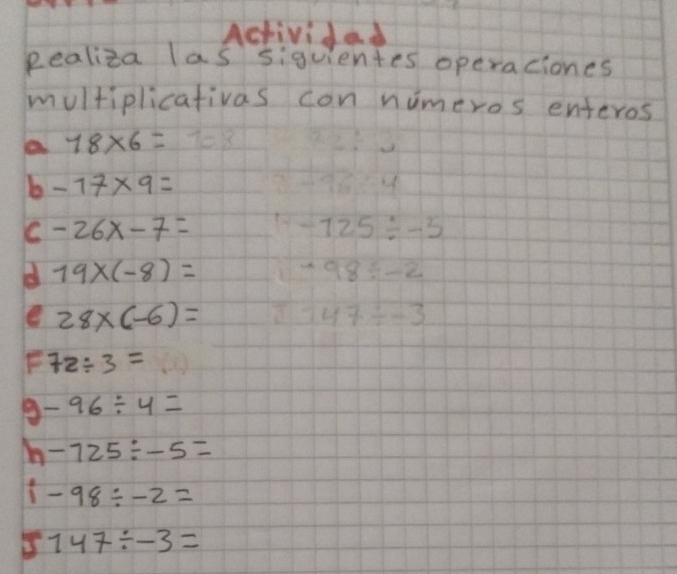 Actividad
Realiza las siguientes operaciones
multiplicativas con números enteros
a 18x6=
b -17x9=
c -26x-7=
-125÷-5
d 19x(-8)=
-98÷-2
e 28x(-6)=
J 147÷-3
F 72÷3=
g -96÷4=
h -125÷-5=
i -98÷-2=
J 147÷-3=